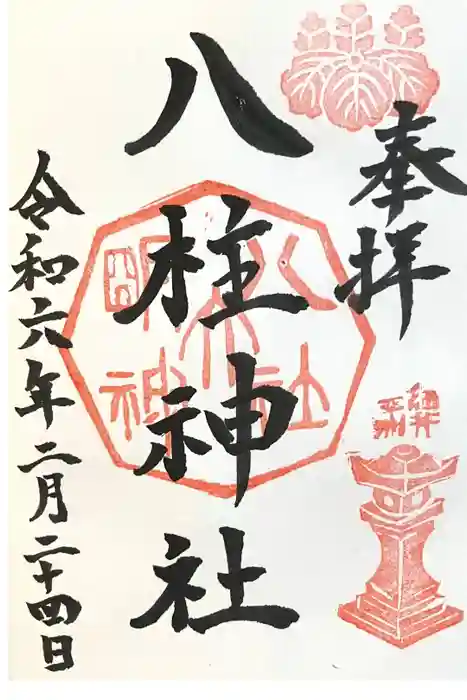 奉拝
八柱神社
令和六年二月二十四日